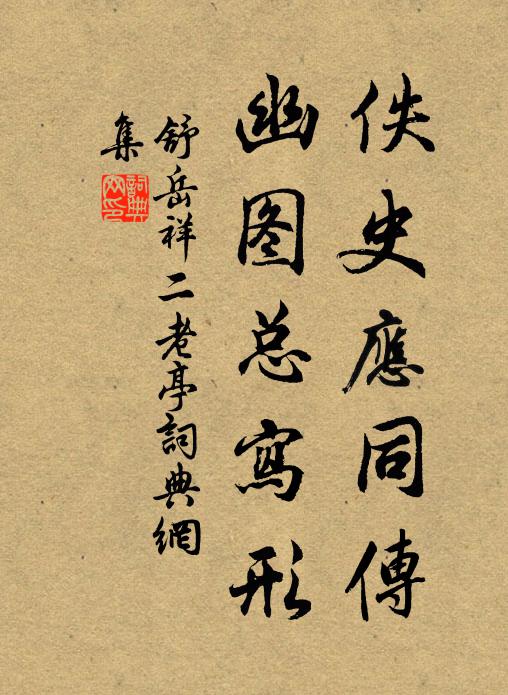 佚史應同傳
幽图总寫形
舒岳祥二老亭詞典網
集
詞典網印